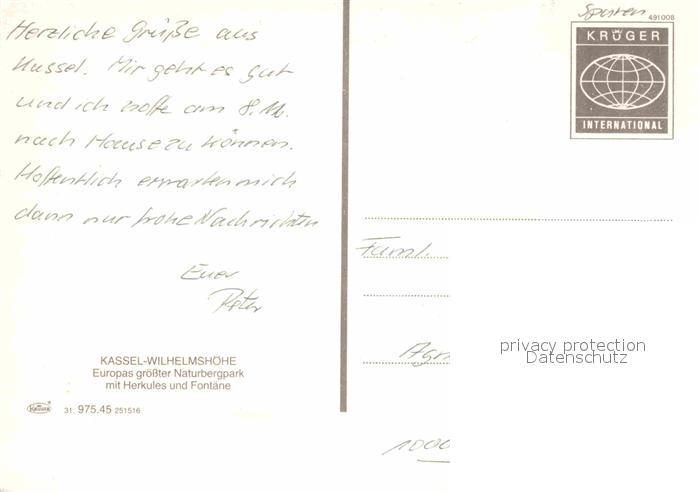 Herzliche Grüße aus
Kassel. Mir geht es gut
und ich hoffe am 8. M.
nach Hause zu können.
Hoffentlich erwarten mich
dann nur frohe Nachrichten
Euer
Peter
KASSEL-WILHELMSHÖHE
Europas größter Naturbergpark
mit Herkules und Fontäne
31. 975.45 251516
Sparen
491008
KRÜGER
INTERNATIONAL
Faml.
Agn
privacy protection
Datenschutz
1000